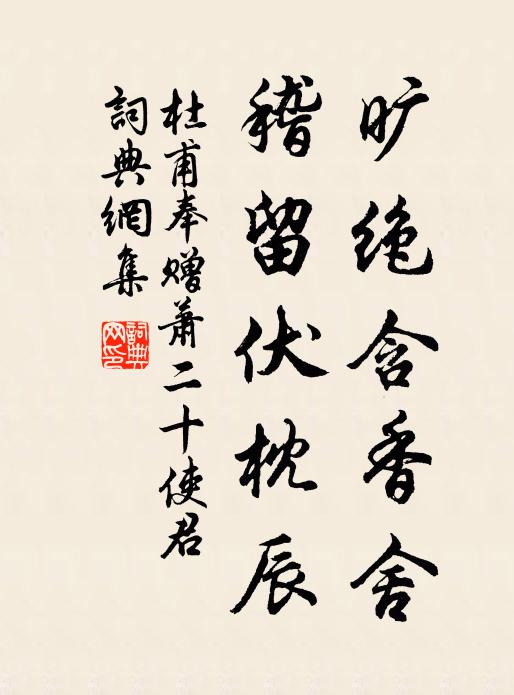 旷绝含香舍
稽留伏枕辰
杜甫奉赠萧二十使君
詞典網集
詞典
网印